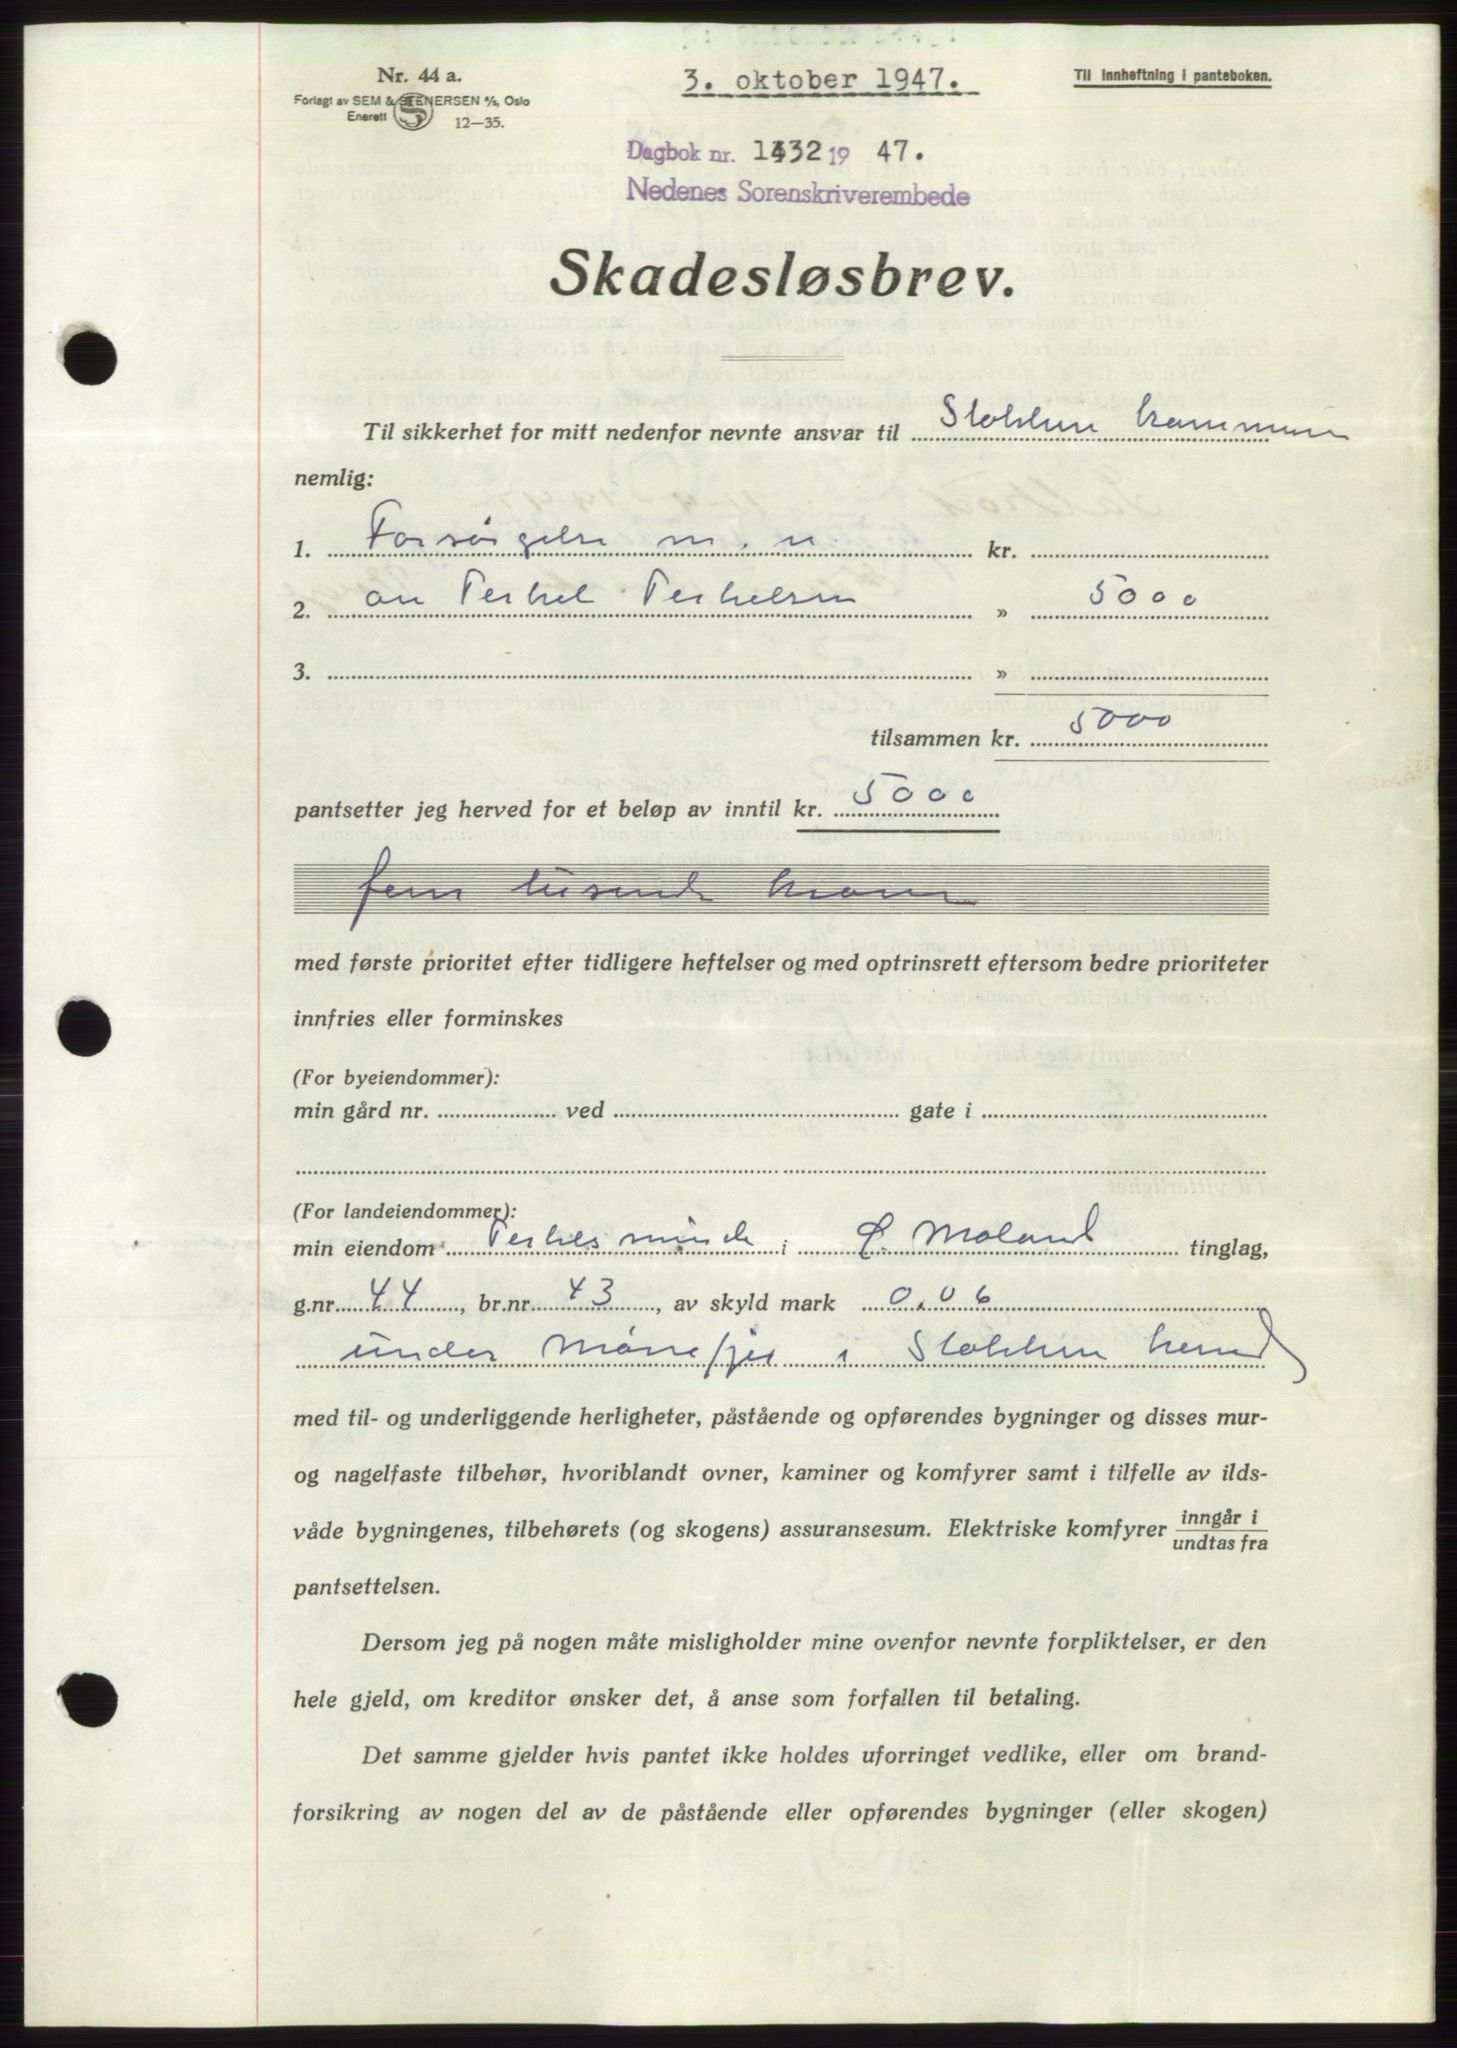 Nr. 44 a.
Forlagt av SEM & STENERSEN A/S, Oslo
Enerett
12—35.
3. oktober 1947.
Til innheftning i panteboken.
Dagbok nr. 1432 19 47.
Nedenes Sorenskriverembede
Skadesløsbrev.
Til sikkerhet for mitt nedenfor nevnte ansvar til Stokken kommune
nemlig:
1. Forsørgelse m. u. kr.
2. av Terkel Terkelsen » 5000
3. »
tilsammen kr. 5000
pantsetter jeg herved for et beløp av inntil kr. 5000
fem tusende kroner
med første prioritet efter tidligere heftelser og med optrinsrett eftersom bedre prioriteter
innfries eller forminskes
(For byeiendommer):
min gård nr. ved gate i
(For landeiendommer):
min eiendom Terkelsminde i Ø. Moland tinglag,
g.nr. 44, br.nr. 43, av skyld mark 0,06
under i Stokken herred
med til- og underliggende herligheter, påstående og opførendes bygninger og disses mur-
og nagelfaste tilbehør, hvoriblandt ovner, kaminer og komfyrer samt i tilfelle av ilds-
våde bygningenes, tilbehørets (og skogens) assuransesum. Elektriske komfyrer inngår i
undtas fra
pantsettelsen.
Dersom jeg på nogen måte misligholder mine ovenfor nevnte forpliktelser, er den
hele gjeld, om kreditor ønsker det, å anse som forfallen til betaling.
Det samme gjelder hvis pantet ikke holdes uforringet vedlike, eller om brand-
forsikring av nogen del av de påstående eller opførendes bygninger (eller skogen)